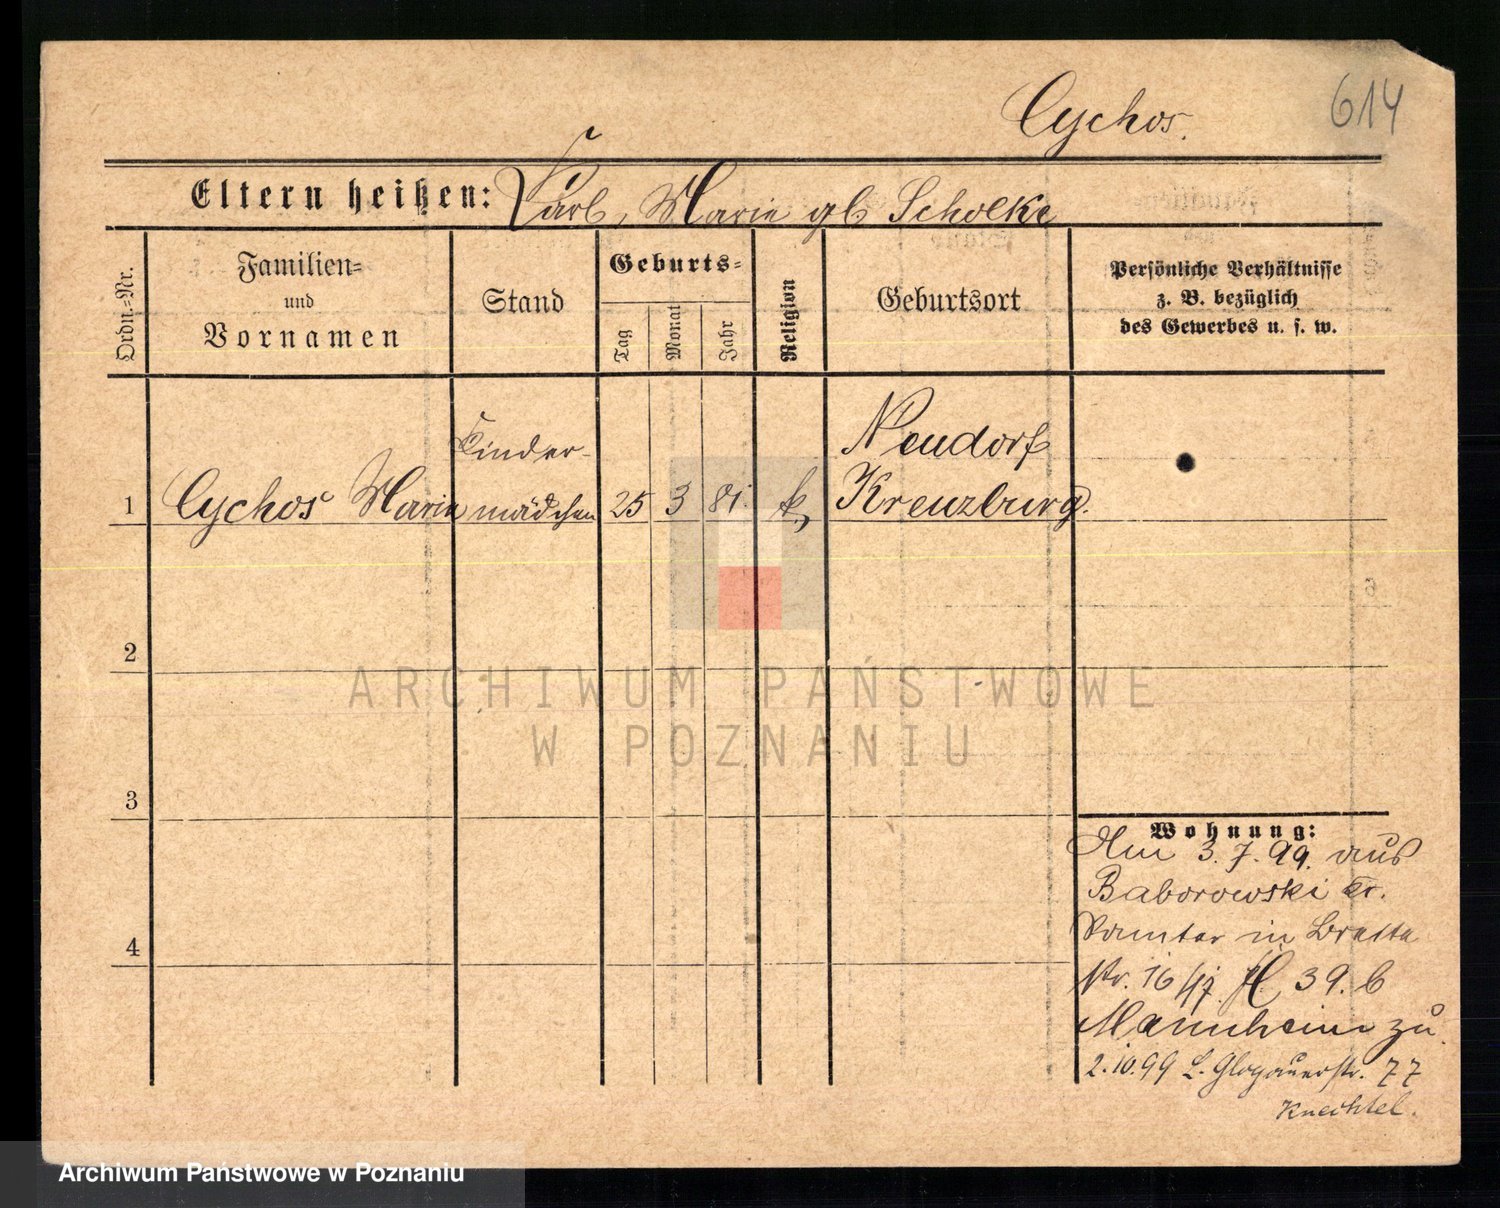 614
Cychos.
Eltern heißen: Karl, Marie gb Scholke
Ordn.=Nr.
Familien=
und
Vornamen
Stand
Geburts=
Tag
Monat
Jahr
Religion
Geburtsort
Persönliche Verhältnisse
z. B. bezüglich
des Gewerbes u. s. w.
1 Cychos Marie
Kinder-
mädchen
25 3 81. k,
Neudorf
Kreuzburg.
2
3
4
Wohnung:
Am 3.7.99. aus
Baborowski Kr.
in
str. 16/17. 39.b
Mannheim zu.
2.10.99 L. Glogauerstr. 77
Knechtel.
ARCHIWUM PAŃSTWOWE
W POZNANIU
Archiwum Państwowe w Poznaniu